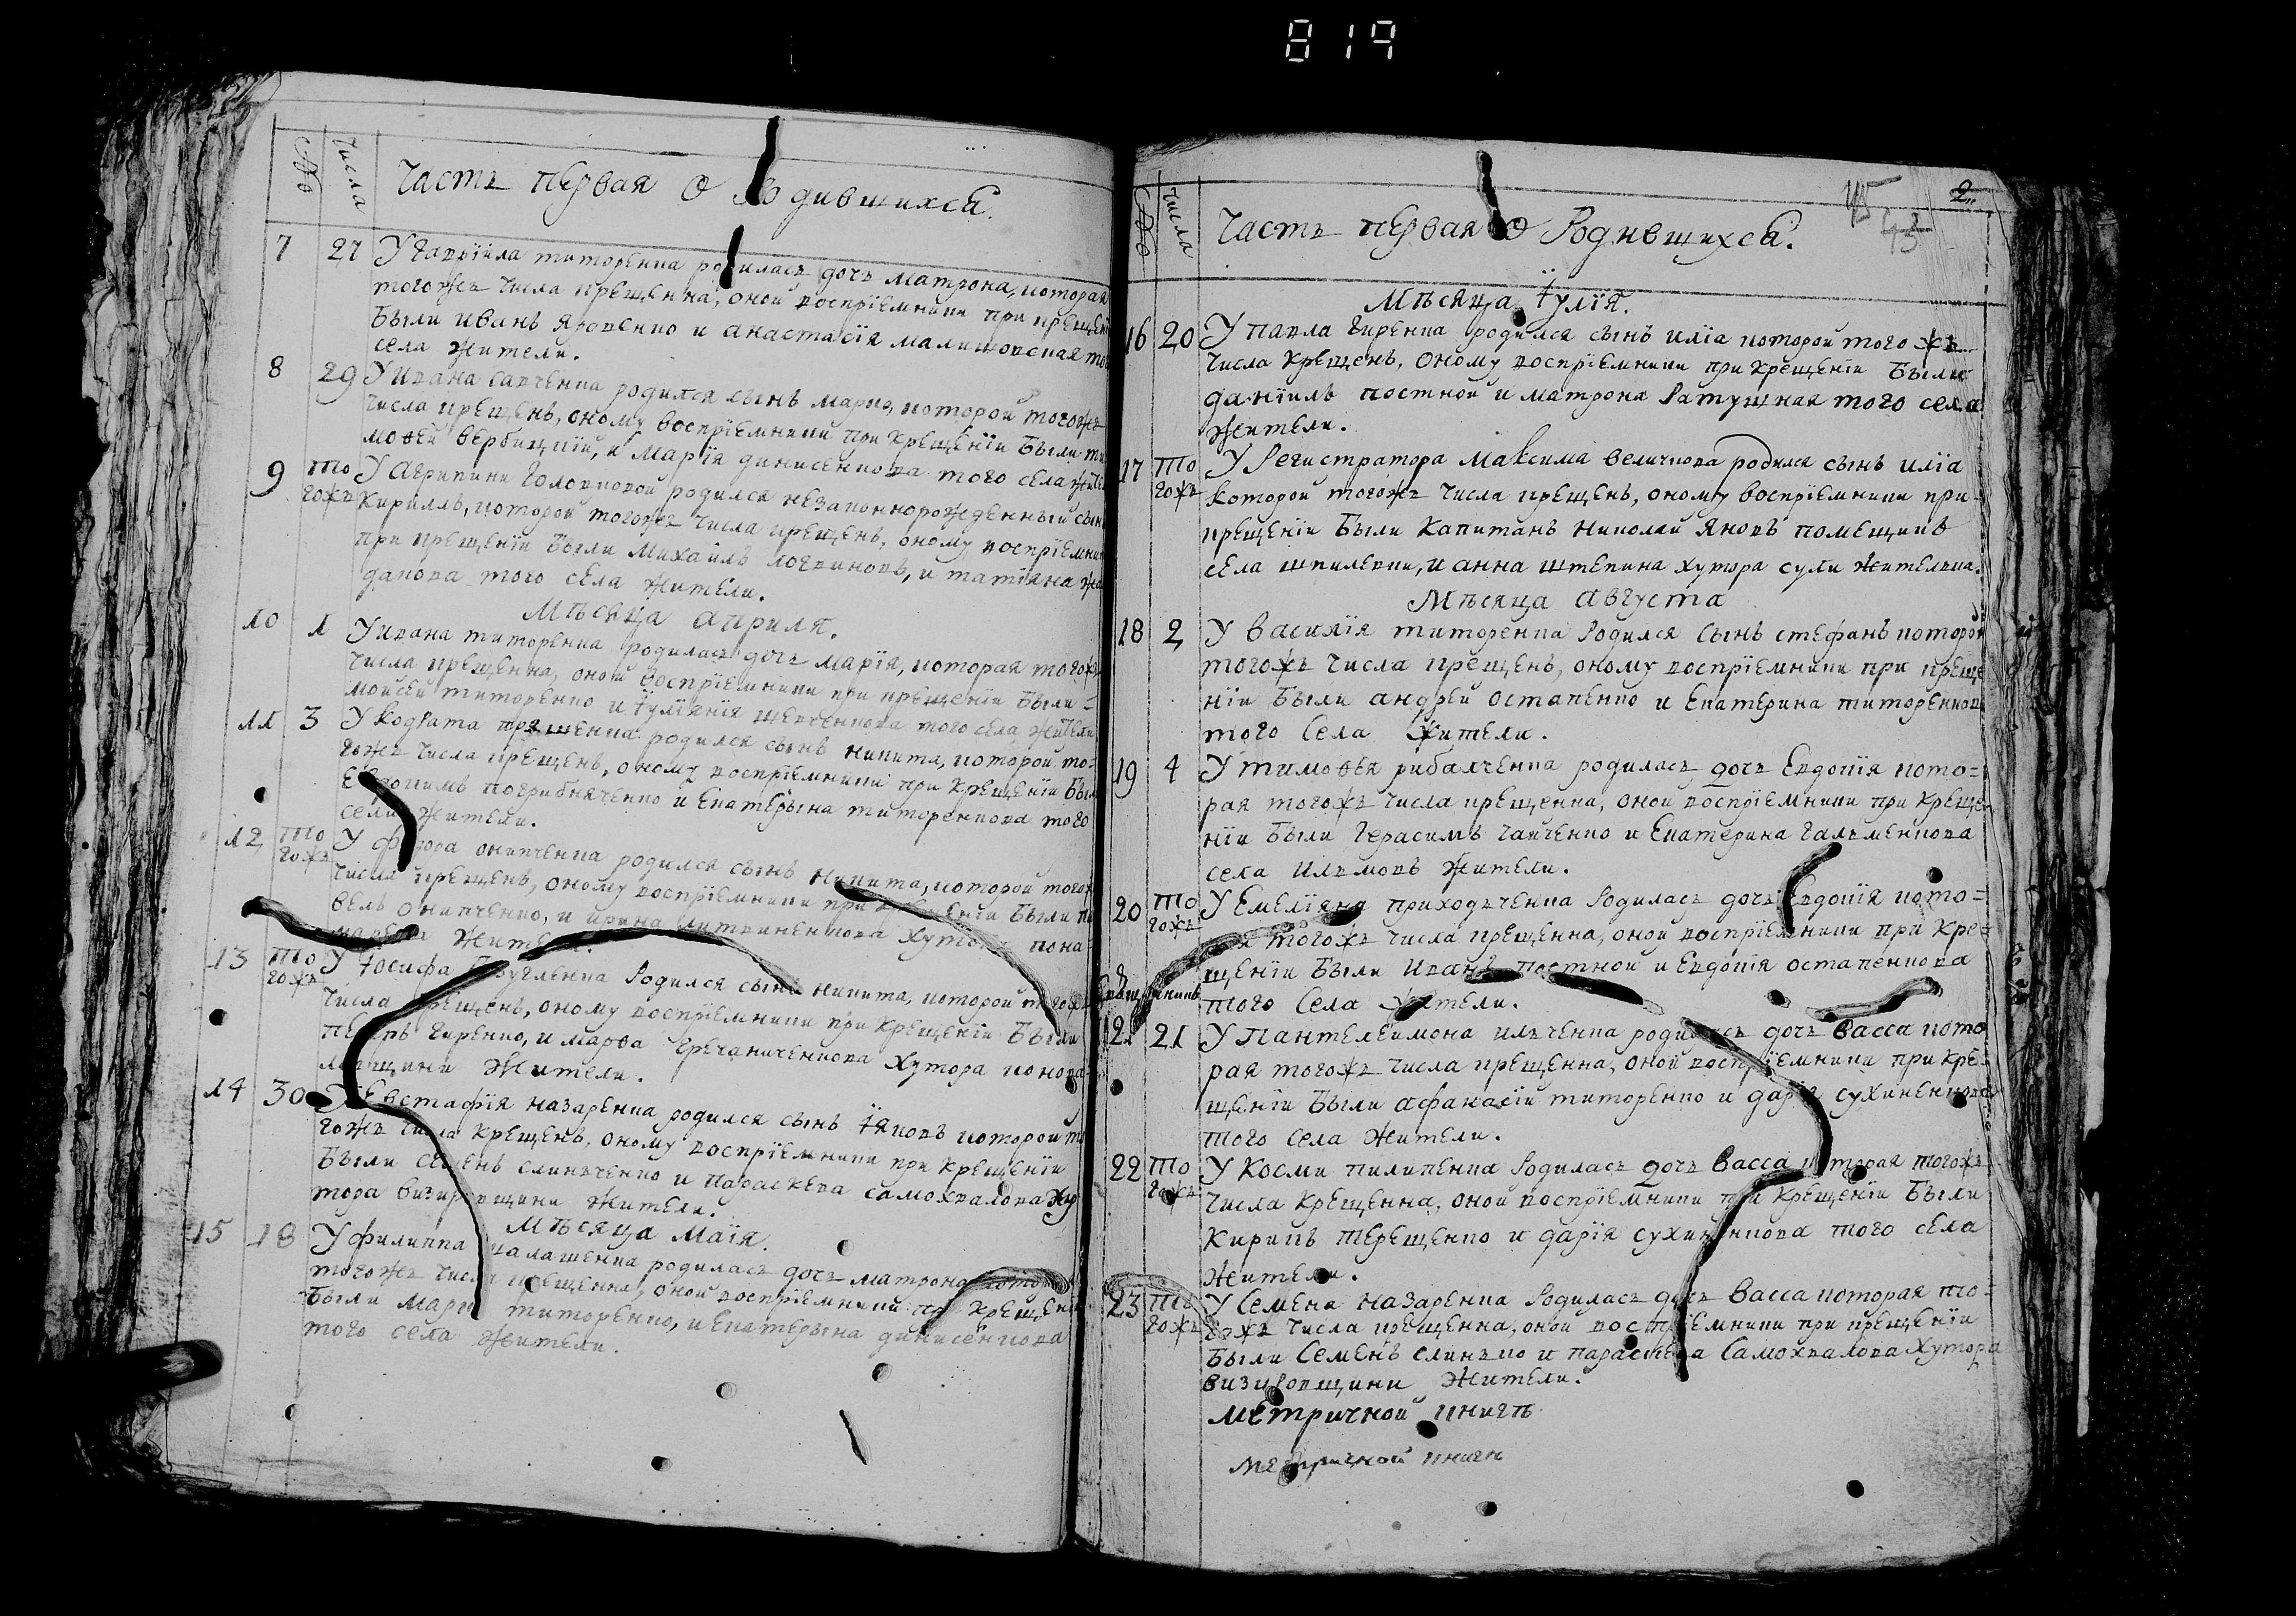 819
Число
Часть первая о Родившихся.
7 27 У гавріила титоренка родилась дочь матрона, которая
тогожъ числа крещенна, оной воспріемники при крещеніи
были иванъ яровенко и анастасія малишовская того
села жители.
8 29 У ивана савченка родился сынъ марко, которой тогожъ
числа крещенъ, оному воспріемники при крещеніи были
мофей вербицкій, и Марія динисенкова того села жители
9 то гожъ У агрипини Головковой родился незаконнорожденный сынъ
кириллъ, которой тогожъ числа крещенъ, оному воспріемники
при крещеніи были Михаилъ логвиновъ, и татіяна
того села жители.
Мѣсяца априля.
10 1 У ивана титоренка родилась дочь марія, которая тогожъ
числа крещенна, оной воспріемники при крещеніи были =
мойсей титоренко и іуліянія шевченкова того села жители
11 3 У кодрата родился сынъ никита, которой то=
гожъ числа крещенъ, оному воспріемники при крещеніи были
погрибняченко и Екатерына титоренкова того
села жители.
12 то гожъ У онипченка родился сынъ никита, которой тогожъ
числа крещенъ, оному воспріемники при крещеніи были па
велъ онипченко, и ирина литвиненкова хутора пона
жители.
13 то гожъ У іосифа родился сынъ никита, которой тогожъ
числа крещенъ, оному воспріемники при крещеніи были
петръ гиренко, и марфа гречаниченкова хутора понома
жители.
14 30 У Евстафія назаренка родился сынъ іяковъ которой то
гожъ числа крещенъ, оному воспріемники при крещеніи
были семенъ слинъченко и параскева самохвалова ху
тора визировщини жители.
Мѣсяца Маія.
15 18 У филиппа калашенка родилась дочь матрона которая
тогожъ числа крещенна, оной воспріемники при крещеніи
были марко титоренко, и Екатерына динисенкова
того села жители.
2
45
43
Число
Часть первая о Родившихся.
Мѣсяца іулія.
16 20 У павла гиренка родился сынъ иліа которой того жъ
числа крещенъ, оному воспріемники при крещеніи были
даніилъ постной и матрона Ратушная того села
жители.
17 то гожъ У Регистратора Максима величкова родился сынъ иліа
которой тогожъ числа крещенъ, оному воспріемники при
крещеніи были капитанъ николай яновъ помещикъ
села шпилевки, и анна штепина хутора сули жителька.
Мѣсяца августа
18 2 У василія титоренка Родился сынъ стефанъ которой
тогожъ числа крещенъ, оному воспріемники при креще
ніи были андрей остапенко и Екатерина титоренкова
того села жители.
19 4 У тимофея рибалченка родилась дочь Евдокія кото=
рая тогожъ числа крещенна, оной воспріемники при креще-
ніи были герасимъ чайченко и Екатерина галъменкова
села илъмовъ жители.
20 то гожъ У Емеліяна приходъченка Родилась дочь Евдокія кото=
рая тогожъ числа крещенна, оной воспріемники при кре=
щеніи были иванъ постной и Евдокія остапенкова
того села жители.
21 21 У Пантелеимона илъченка родилась дочь васса кото
рая тогожъ числа крещенна, оной воспріемники при кре-
щеніи были афанасій титоренко и дарія сухиненкова
того села жители.
22 то гожъ У Косми пилипенка Родилась дочь васса которая тогожъ
числа крещенна, оной воспріемники при крещеніи были
Кирикъ терещенко и дарія сухиненкова того села
жители.
23 то гожъ У Семена назаренка Родилась дочь васса которая то=
гожъ числа крещенна, оной воспріемники при крещеніи
были Семенъ слинъко и параскева самохвалова хутора
визировщини жители.
метричной книгѣ
метричной книги